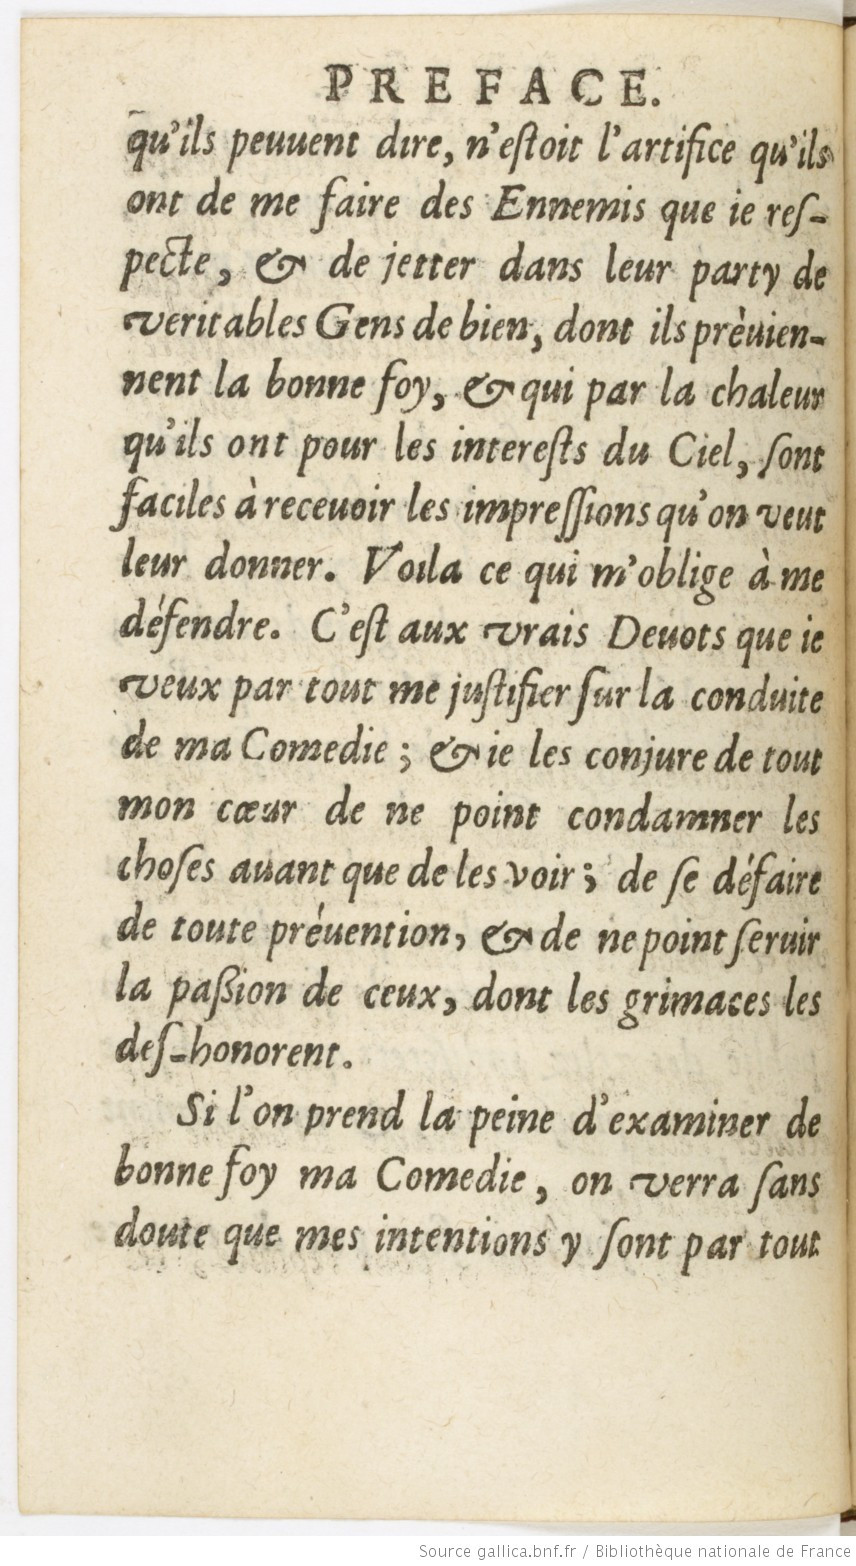 PREFACE.
qu'ils peuuent dire, n'eſtoit l'artifice qu'ils
ont de me faire des Ennemis que ie reſ-
pecte, & de jetter dans leur party de
veritables Gens de bien, dont ils prèuien-
nent la bonne foy, & qui par la chaleur
qu'ils ont pour les intereſts du Ciel, ſont
faciles à receuoir les impreſſions qu'on veut
leur donner. Voila ce qui m'oblige à me
défendre. C'eſt aux vrais Deuots que ie
veux par tout me juſtifier ſur la conduite
de ma Comedie ; & ie les conjure de tout
mon cœur de ne point condamner les
choſes auant que de les voir ; de ſe défaire
de toute préuention, & de ne point ſeruir
la paßion de ceux, dont les grimaces les
deſ-honorent.
Si l'on prend la peine d'examiner de
bonne foy ma Comedie, on verra ſans
doute que mes intentions y ſont par tout
Source gallica.bnf.fr / Bibliothèque nationale de France